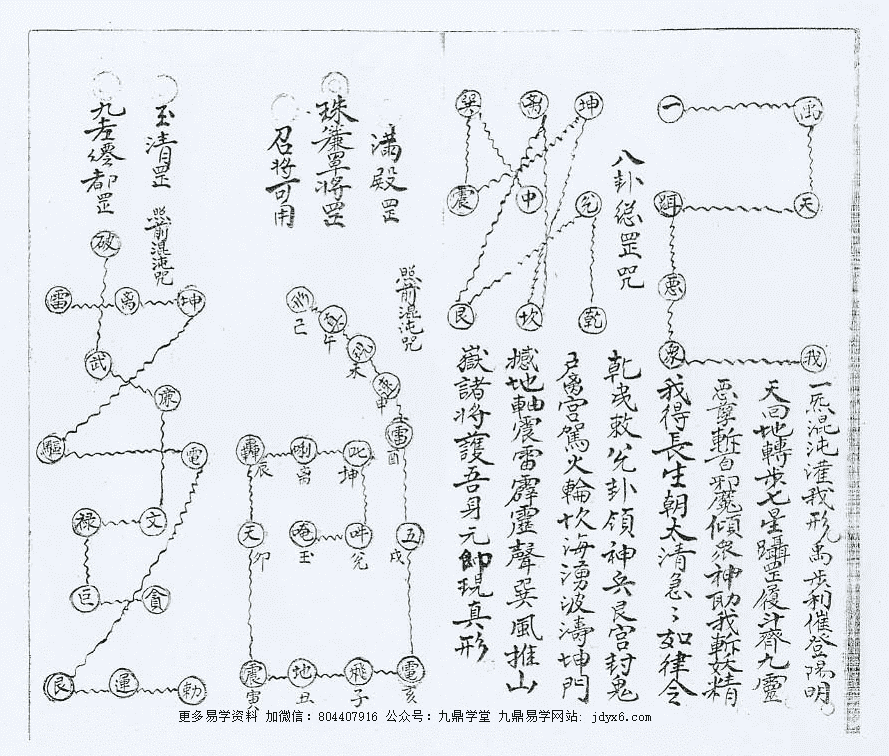 禹
一
天
惡
衆
我
一炁混沌灌我形禹步利催登陽明
天回地轉步七星躡罡履斗齊九靈
惡孽斬百邪魔傾衆神助我斬妖精
我得長生朝太清急々如律令
八卦緫罡咒
坤
离
巽
兊
中
震
乾
坎
艮
乾曳敕兊卦領神兵艮宮封鬼
户离宮駕火輪坎海湧波濤坤門
撼地軸震雷霹靂聲巽風推山
嶽諸將護吾身元帥現真形
滿殿罡
照前混沌咒
珠簾罩將罡
召將可用
己
午
未
申
雷
酉
轟
辰
唎
离
此
坤
天
卯
唵
玉
吽
兊
五
戌
震
寅
地
丑
飛
子
電
亥
玉清罡
照前混沌咒
九老僊都罡
破
雷
离
坤
武
廉
驅
電
禄
文
巨
貪
艮
運
勅
更多易学资料 加微信：804407916 公众号：九鼎学堂 九鼎易学网站：jdyx6.com